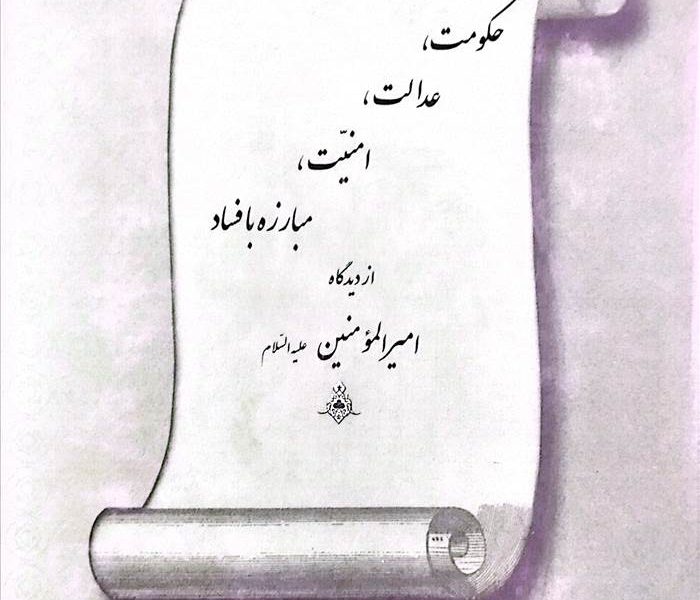 حکومت،
عدالت،
امنیّت،
مبارزه با فساد
از دیدگاه
امیرالمؤمنین علیه السّلام